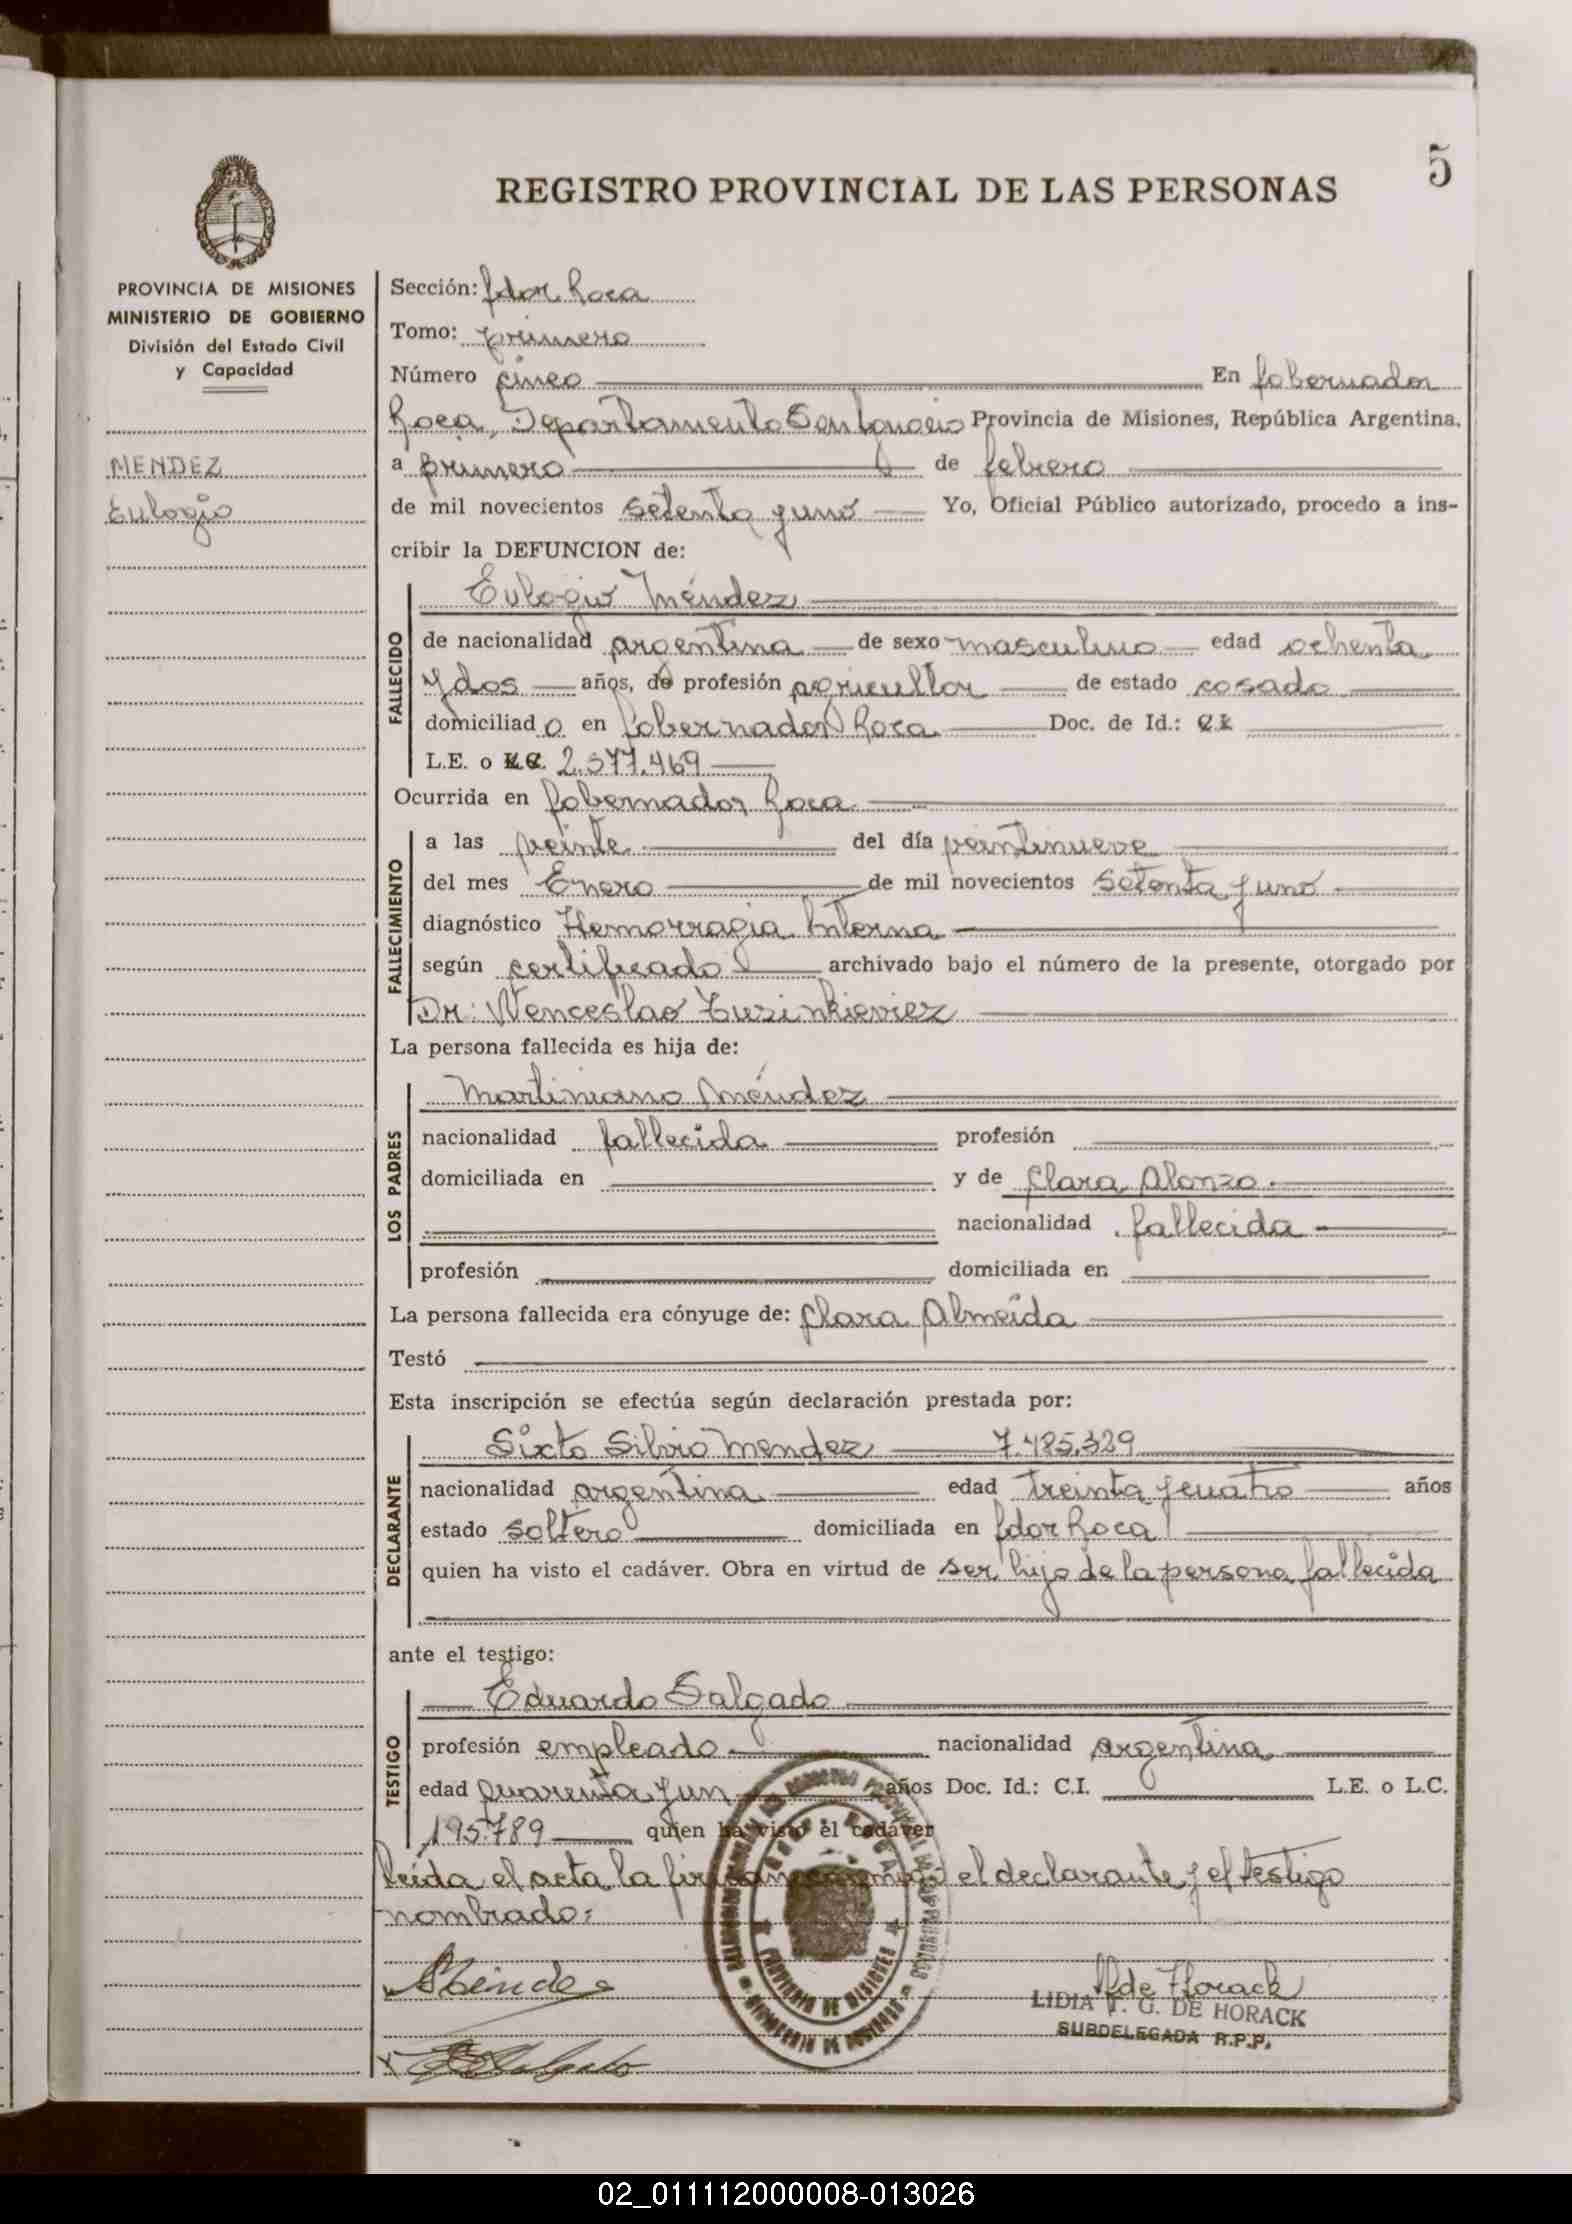 5
REGISTRO PROVINCIAL DE LAS PERSONAS
PROVINCIA DE MISIONES
MINISTERIO DE GOBIERNO
División del Estado Civil
y Capacidad
MENDEZ
Eulogio
Sección: Gdor. Roca
Tomo: primero
Número cinco En Gobernador
Roca, Departamento San Ignacio Provincia de Misiones, República Argentina,
a primero de febrero
de mil novecientos setenta y uno Yo, Oficial Público autorizado, procedo a ins-
cribir la DEFUNCION de:
FALLECIDO
Eulogio Méndez
de nacionalidad argentina de sexo masculino edad ochenta
y dos años, de profesión agricultor de estado casado
domiciliado en Gobernador Roca Doc. de Id.: C.I.
L.E. o L.C. 2.577.469
Ocurrida en Gobernador Roca
FALLECIMIENTO
a las veinte del día veintinueve
del mes Enero de mil novecientos setenta y uno
diagnóstico Hemorragia Interna
según certificado archivado bajo el número de la presente, otorgado por
Dr. Wenceslao
La persona fallecida es hija de:
LOS PADRES
Martiniano Méndez
nacionalidad fallecida profesión
domiciliada en y de Clara Alonzo.
nacionalidad fallecida
profesión domiciliada en
La persona fallecida era cónyuge de: Clara Almeida
Testó
Esta inscripción se efectúa según declaración prestada por:
DECLARANTE
Sixto Silvio Mendez 7.485.329
nacionalidad argentina edad treinta y cuatro años
estado soltero domiciliada en Gdor Roca
quien ha visto el cadáver. Obra en virtud de ser hijo de la persona fallecida
ante el testigo:
TESTIGO
Eduardo Salgado
profesión empleado nacionalidad argentina
edad quarenta y un años Doc. Id.: C.I. L.E. o L.C.
195.789 quien ha visto el cadáver
Leída el acta la firman conmigo el declarante y el testigo
nombrado.
SMendez
ESalgado
PROVINCIA DE MISIONES
de Horack
LIDIA T. G. DE HORACK
SUBDELEGADA R.P.P.
02_011112000008-013026